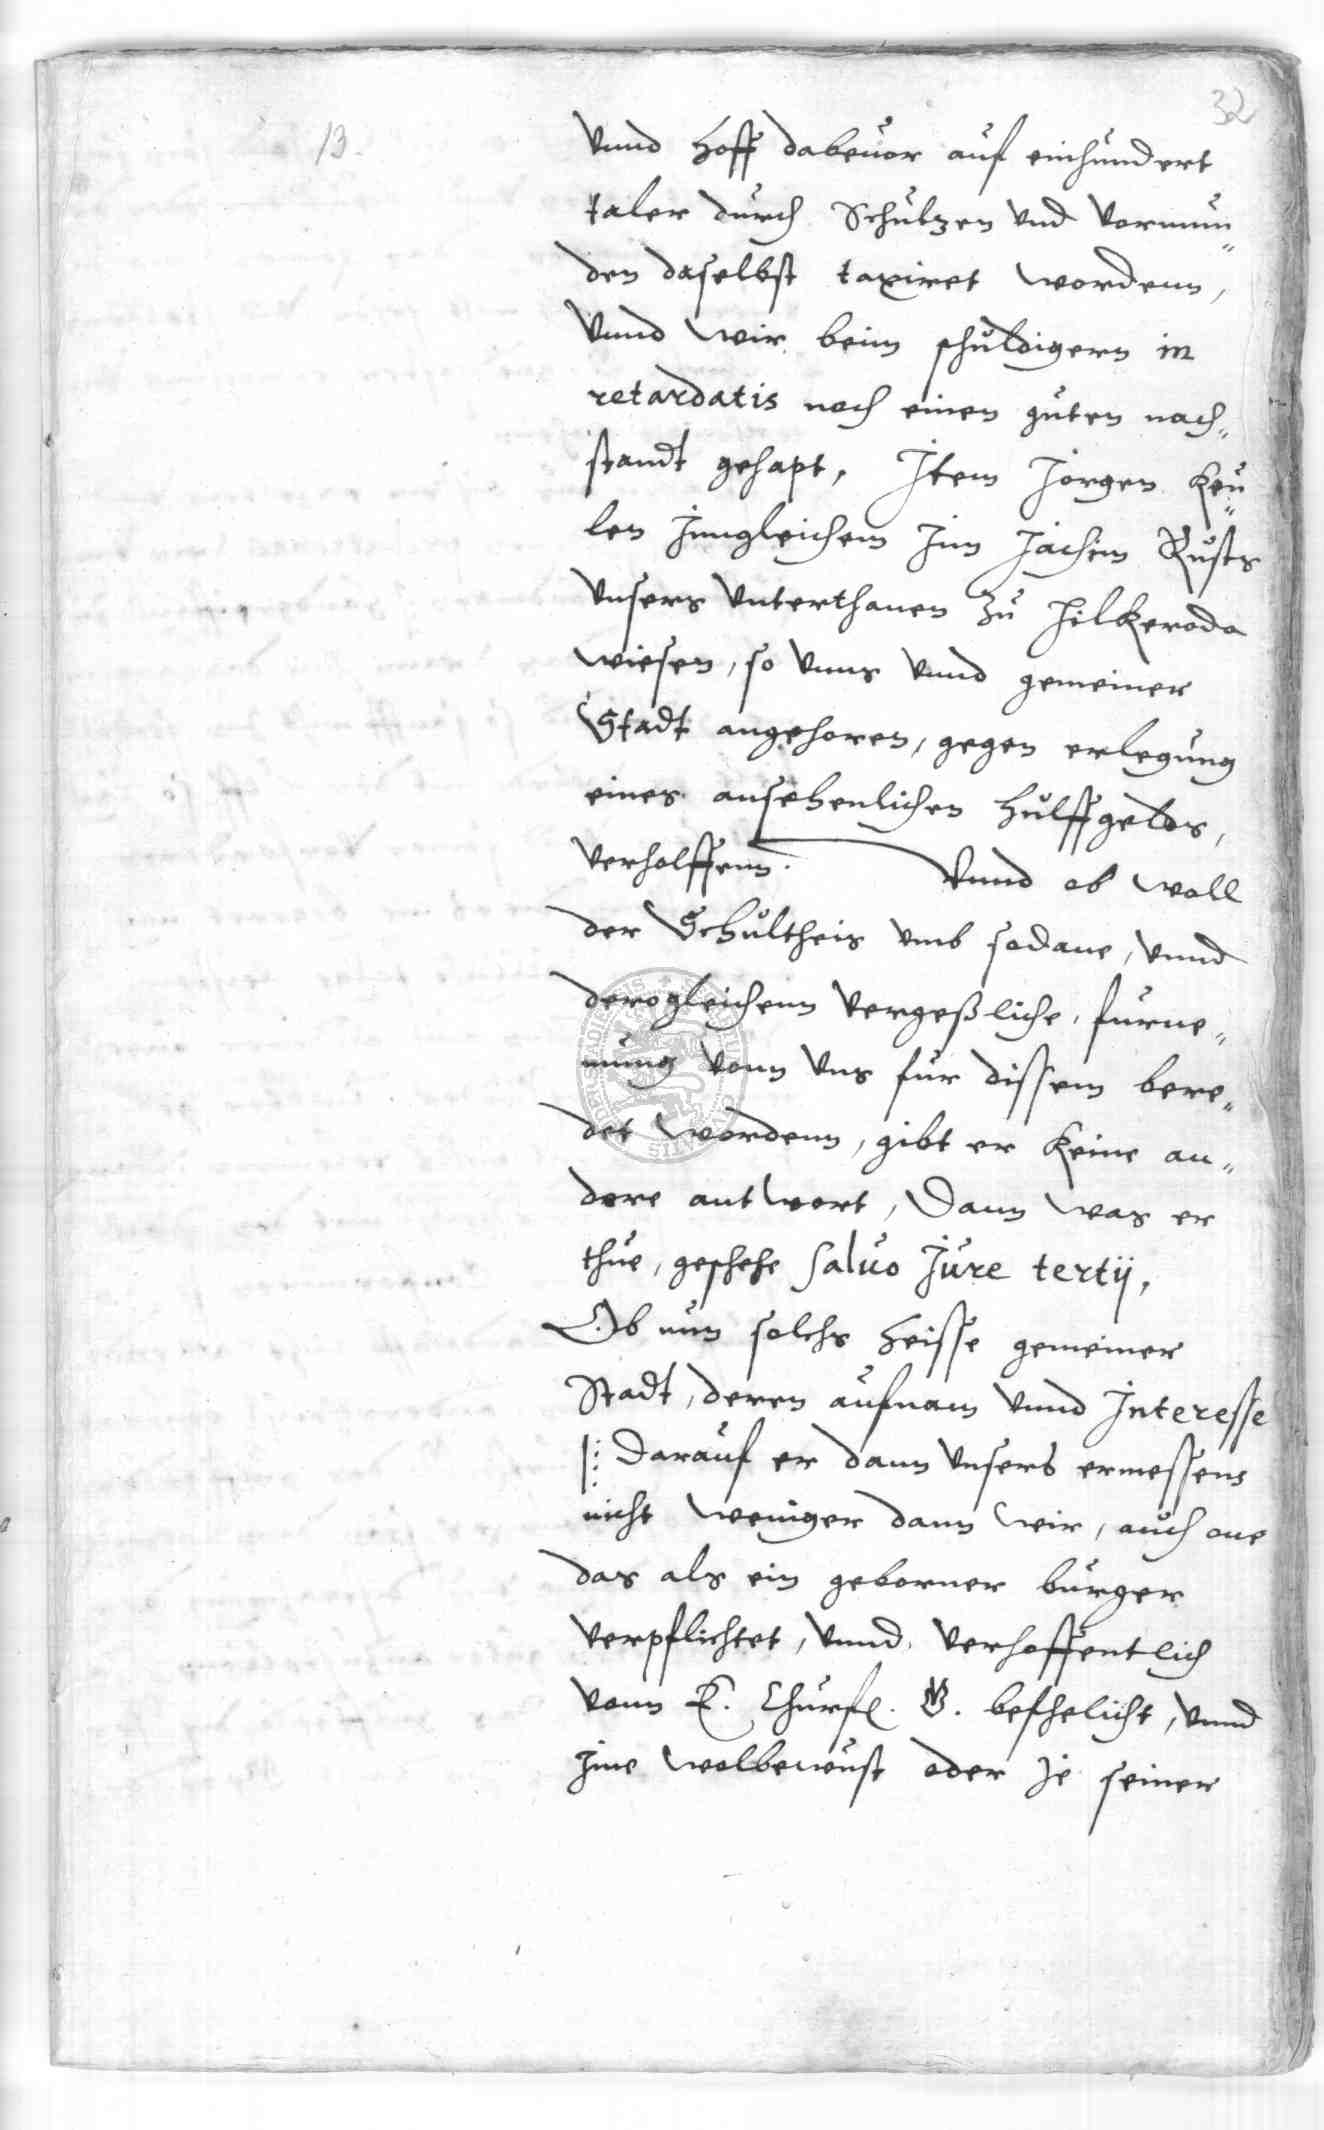 32
13.
Vnnd Hoff dabeuor auf einhundert
taler durch Schultzen vnd vormun„
den daselbst taxiret wordenn,
Vnnd wir beim schuldigern in
retardatis noch einen guten nach„
standt gehapt, Item Jorgen Keu„
len Jnngleichem Jnn Jachim Rusts
vnsers vnterthanen zu Hilkeroda
wiesen, so vnns vnnd gemeiner
Stadt angehoren, gegen erlegung
eines ansehenlichen Hulffgelds,
verholffenn. Vnnd ob woll
der Schultheis vmb sodane, vnnd
derogleichenn vergeßliche, furne„
mung vonn vns fur dissem bere„
det wordenn, gibt er keine an„
dere antwort, Dann was er
thue, geschehe Saluo Jure tertij,
Ob nun solchs heisse gemeiner
Stadt, deren aufnam vnnd Interesse
|: Darauf er dann vnsers ermessens
nicht weniger dann wir, auch one
das als ein geborner burger
verpflichtet, vnnd, verhoffentlich
vonn E. Churf. G. befhelicht, vnnd
Jme wolbewust oder Je seiner